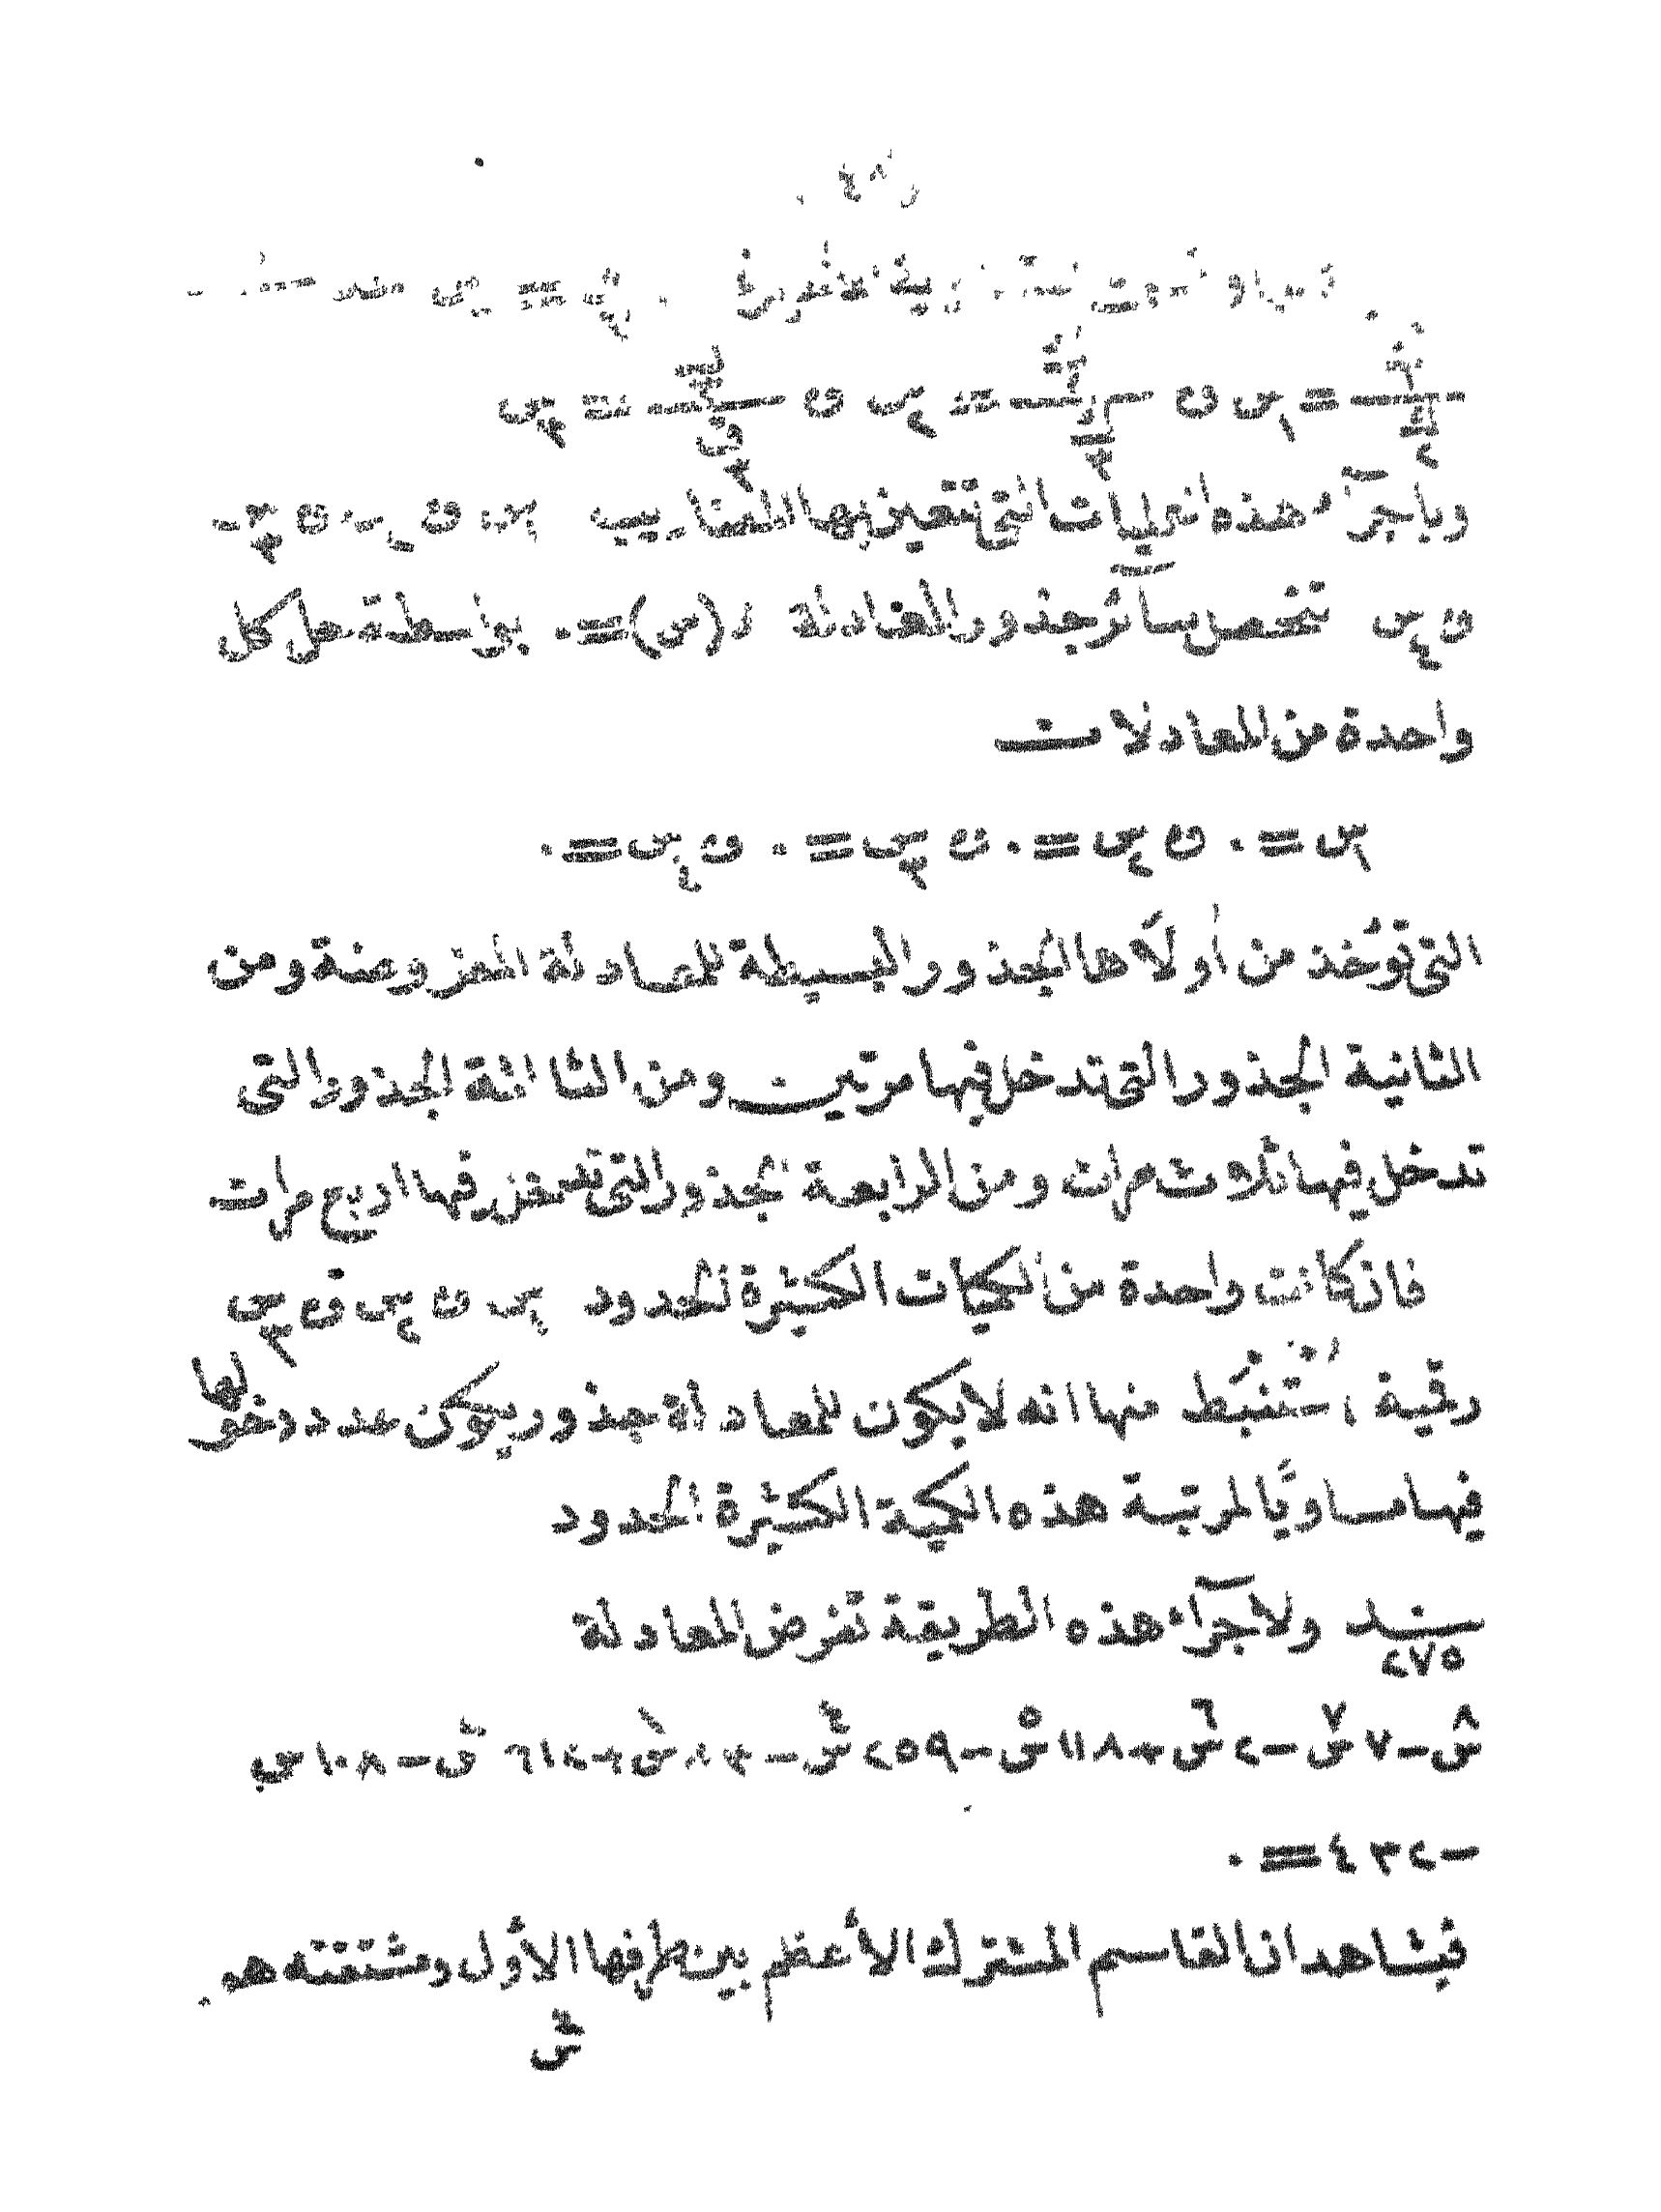 ٤٨
وباجرآء هذه العمليات التى تتعين بها المضاريب س١ و س٢ و س٣
و س٤ تتحصل سآئر جذور المعادلة د(س)=٠ بواسطة حل كل
واحدة من المعادلات
س١=٠ و س٢=٠ و س٣=٠ و س٤=٠
التى تؤخذ من أولاها الجذور البسيطة للمعادلة المفروضة ومن
الثانية الجذور التى تدخل فيها مرتين ومن الثالثة الجذور التى
تدخل فيها ثلاث مرات ومن الرابعة الجذور التى تدخل فيها اربع مرات
فان كانت واحدة من الكميات الكثيرة الحدود س١ و س٢ و س٣
رقمية استنبط منها انه لا يكون للمعادلة جذور يكون عدد دخولها
فيها مساويًا لمرتبة هذه الكمية الكثيرة الحدود
بند ٢٧٥ ولاجرآء هذه الطريقة تفرض المعادلة
س٨-٧س٧-٢س٦+١١٨س٥-٢٥٩س٤-٨٣س٣+٦١٢س٢-١٠٨س
-٤٣٢=٠
فيشاهد ان القاسم المشترك الأعظم بين طرفها الأول ومشتقته هو
س٤